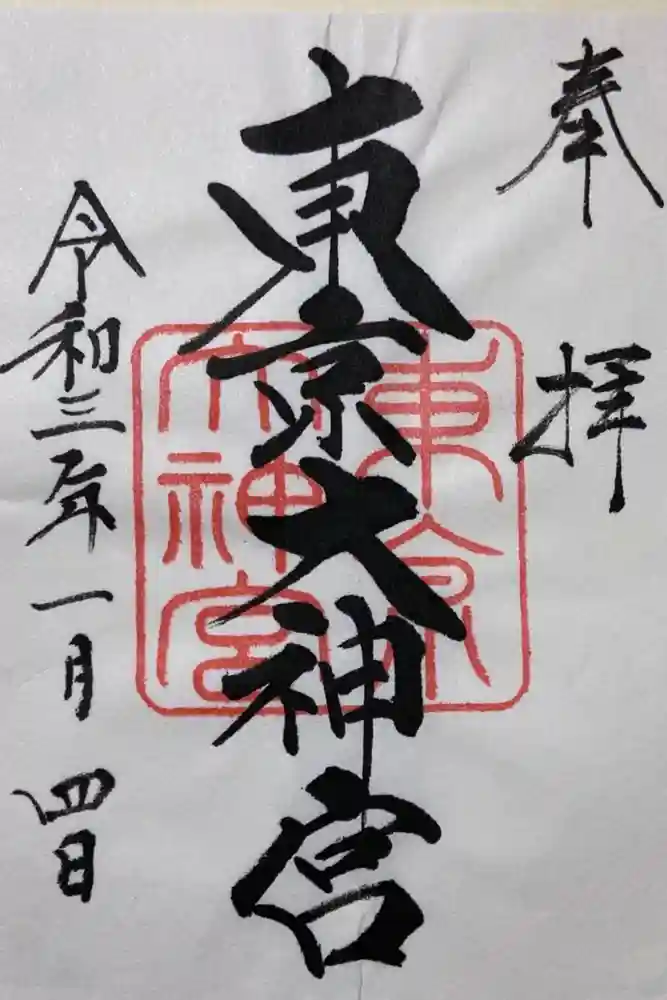 奉拝
東京大神宮
東京
大神宮
令和三年一月四日